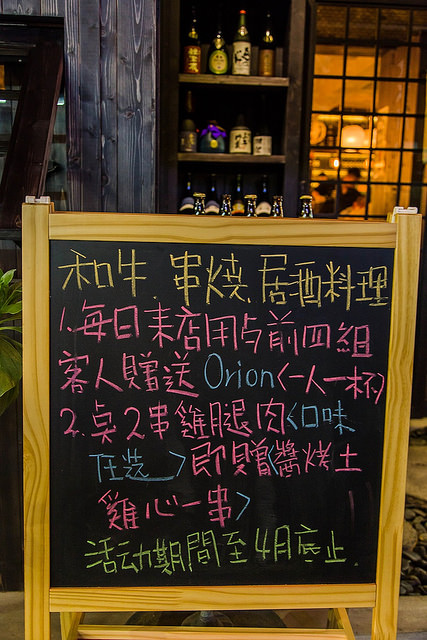 和牛 串燒 居酒料理
1.每日來店用占前四組
客人贈送 Orion<一人一杯>
2.点2串雞腿肉<口味
任选>即贈<醬烤土
雞心一串>
活动期間至4月底止.